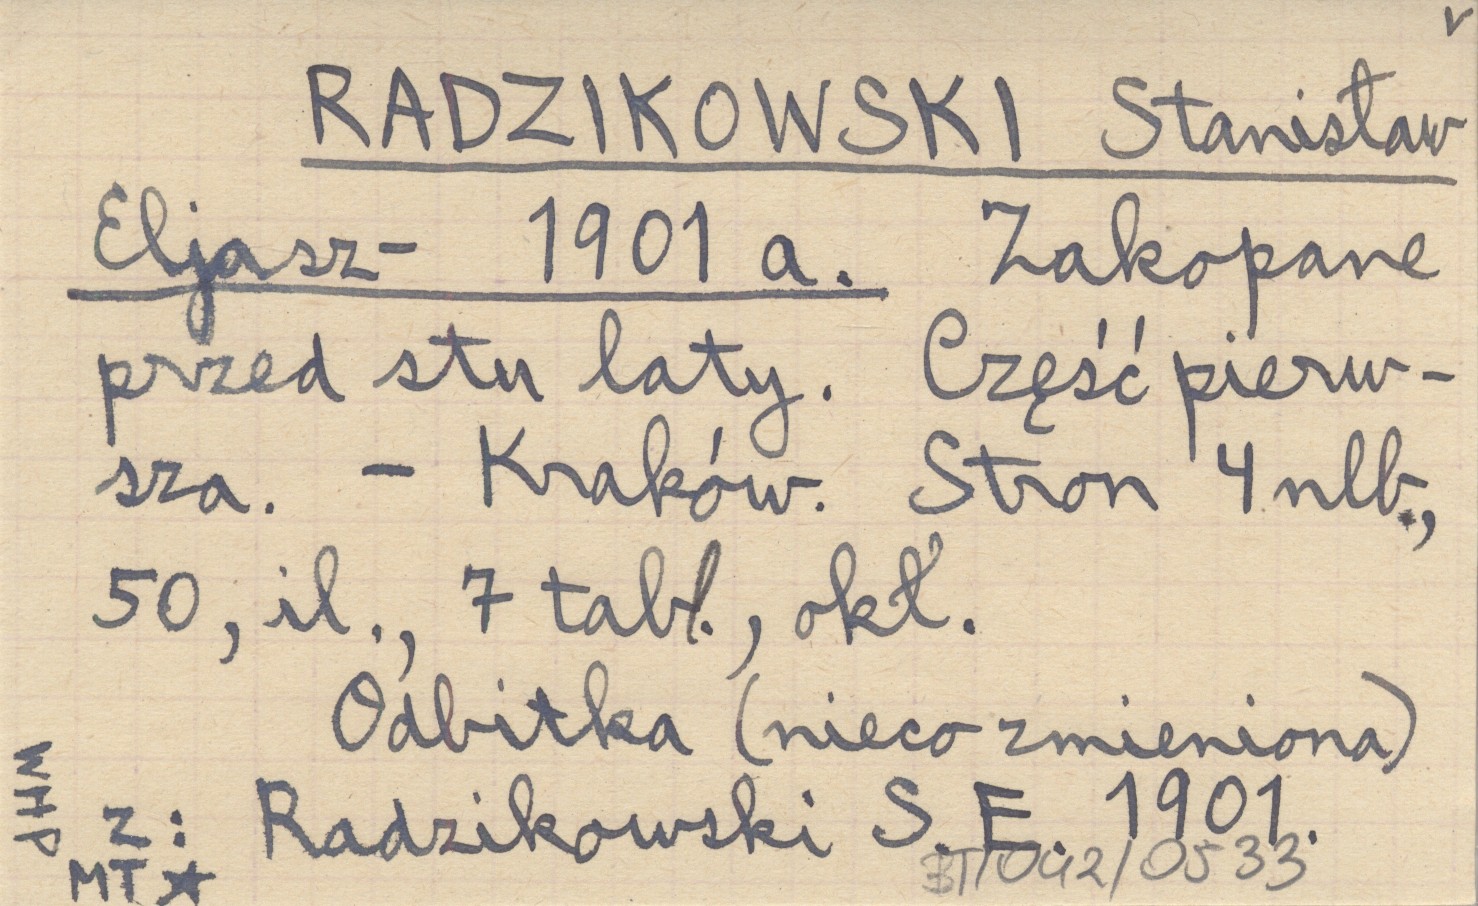 v
RADZIKOWSKI Stanisław
Eljasz- 1901 a. Zakopane
przed stu laty. Część pierw-
sza. - Kraków. Stron 4 nlb.,
50, il., 7 tabl., okł.
Odbitka (nieco zmieniona)
z: Radzikowski S. E. 1901.
WHP
MT ★
BT/042/0533